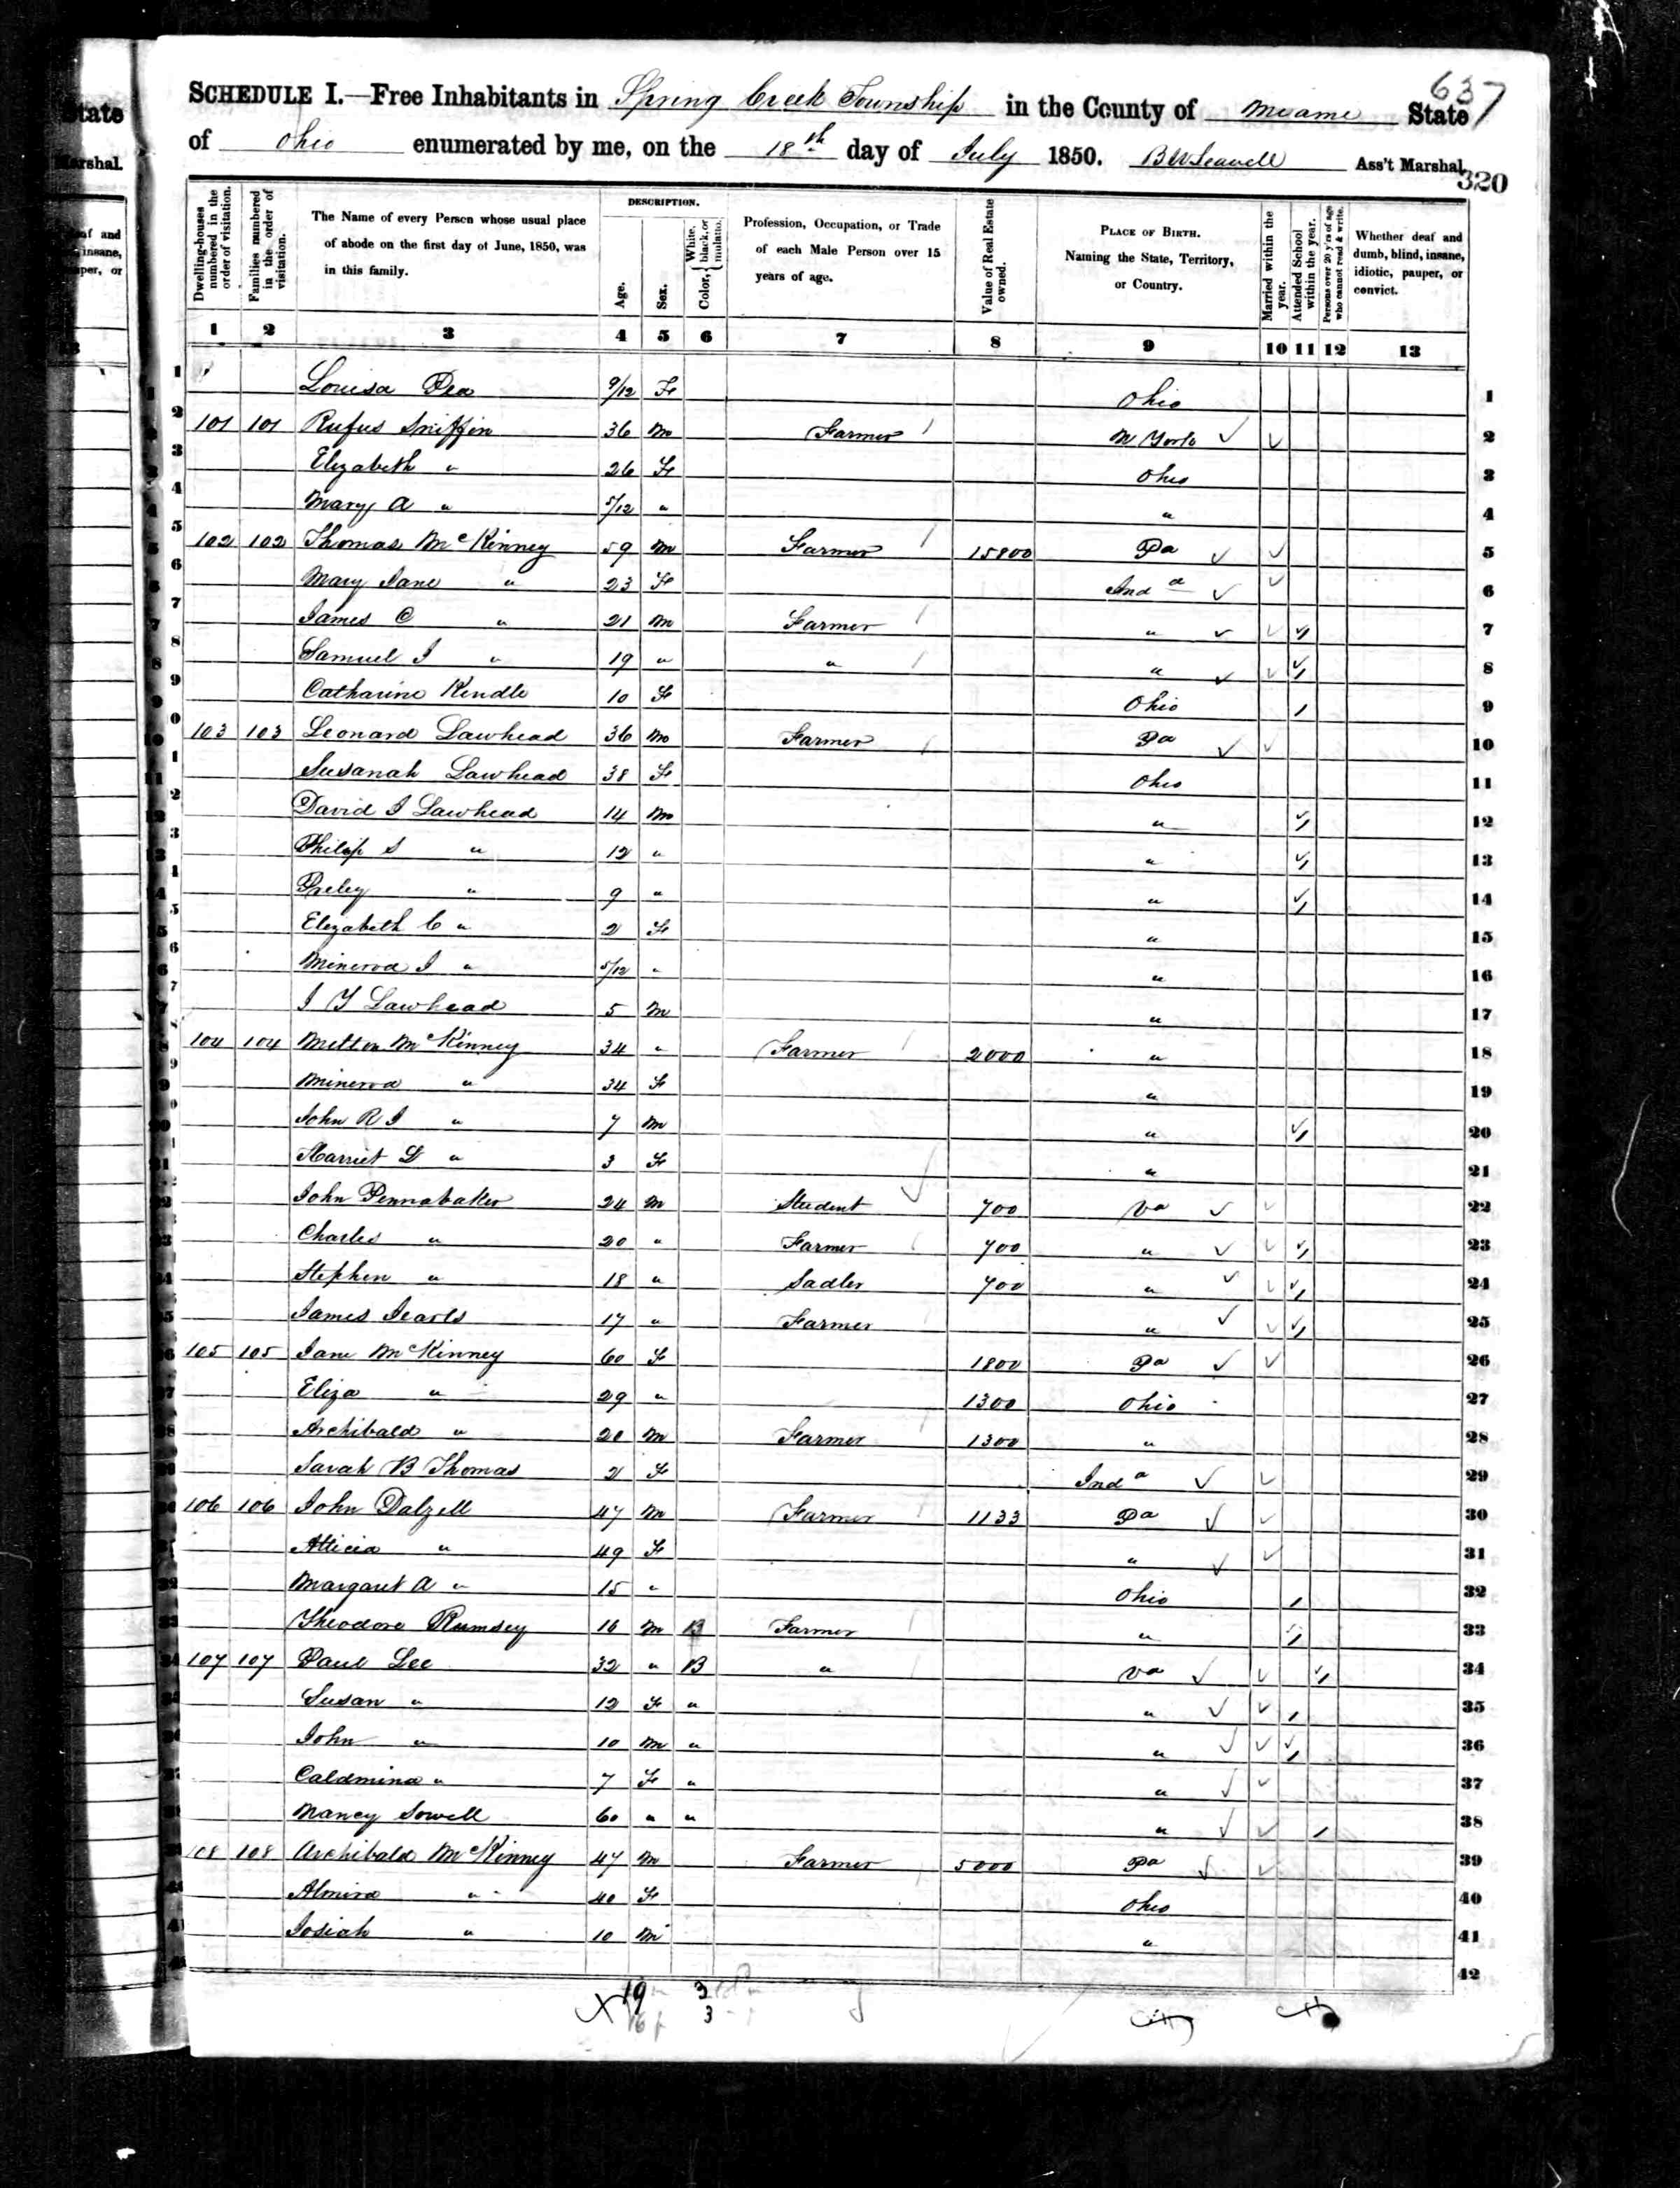 637
SCHEDULE I.—Free Inhabitants in Spring Creek Township in the County of Miami State
of Ohio enumerated by me, on the 18th day of July 1850. B W Leavell Ass't Marshal.
320
State
Marshal.
Dwelling-houses numbered in the order of visitation.
Families numbered in the order of visitation.
The Name of every Person whose usual place of abode on the first day of June, 1850, was in this family.
DESCRIPTION.
Age.
Sex.
Color, { White, black, or mulatto.
Profession, Occupation, or Trade of each Male Person over 15 years of age.
Value of Real Estate owned.
PLACE OF BIRTH. Naming the State, Territory, or Country.
Married within the year.
Attended School within the year.
Persons over 20 y'rs of age who cannot read & write.
Whether deaf and dumb, blind, insane, idiotic, pauper, or convict.
1 2 3 4 5 6 7 8 9 10 11 12 13
1 Louisa Pea 9/12 F Ohio 1
2 101 101 Rufus Sniffin 36 M Farmer N York 2
3 Elizabeth " 26 F Ohio 3
4 Mary A " 5/12 " " 4
5 102 102 Thomas McKinney 59 M Farmer 15800 Pa 5
6 Mary Jane " 23 F Inda 6
7 James C " 21 M Farmer " 7
8 Samuel J " 19 " " " 8
9 Catharine Kendle 10 F Ohio 9
103 103 Leonard Lawhead 36 M Farmer Pa 10
Susanah Lawhead 38 F Ohio 11
David J Lawhead 14 M " 12
Philip S " 12 " " 13
Preley " 9 " " 14
Elizabeth C " 2 F " 15
Minerva J " 5/12 " " 16
J Y Lawhead 5 M " 17
104 104 Milton McKinney 34 " Farmer 2000 " 18
Minerva " 34 F " 19
John R J " 7 M " 20
Harriet L " 3 F " 21
John Pennabaker 24 M Student 700 Va 22
Charles " 20 " Farmer 700 " 23
Stephen " 18 " Sadler 700 " 24
James Searls 17 " Farmer " 25
105 105 Jane McKinney 60 F 1800 Pa 26
Eliza " 29 " 1300 Ohio 27
Archibald " 20 M Farmer 1300 " 28
Sarah B Thomas 2 F Inda 29
106 106 John Dalzell 47 M Farmer 1133 Pa 30
Atticia " 49 F " 31
Margaret A " 15 " Ohio 32
Theodore Rumsey 16 M B Farmer " 33
107 107 Paul Lee 32 " B " Va 34
Susan " 12 F " " 35
John " 10 M " " 36
Caldmina " 7 F " " 37
Nancy Sowell 60 " " " 38
108 108 Archibald McKinney 47 M Farmer 5000 Pa 39
Almira " 40 F Ohio 40
Josiah " 10 M " 41
42
19 3
3